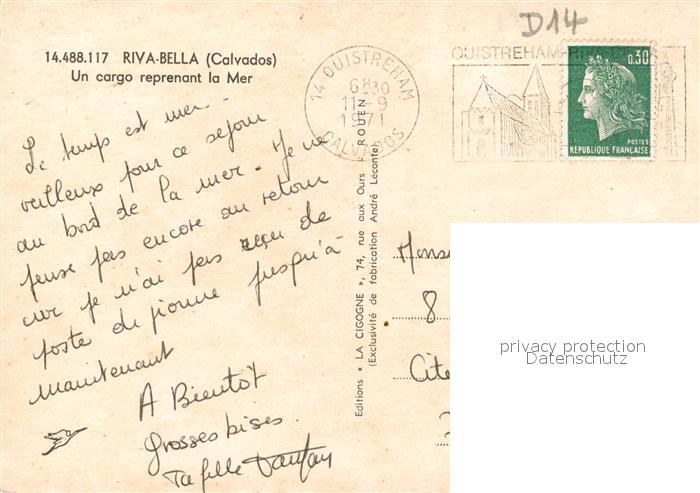 D14
14.488.117 RIVA-BELLA (Calvados)
Un cargo reprenant la Mer
14-OUISTREHAM
6H30
11-9
1971
CALVADOS
OUISTREHAM-RIVA
0,30
POSTES
REPUBLIQUE FRANÇAISE
Le temps est mer-
veilleux pour ce séjour
au bord de la mer. Je ne
pense pas encore au retour
car je n'ai pas reçu de
poste de pionne jusqu'à
maintenant
A Bientôt
Grosses bises.
Ta fille
Editions « LA CIGOGNE », 74, rue aux Ours - ROUEN
(Exclusivité de fabrication André Leconte)
Mons
8
Cité
privacy protection
Datenschutz